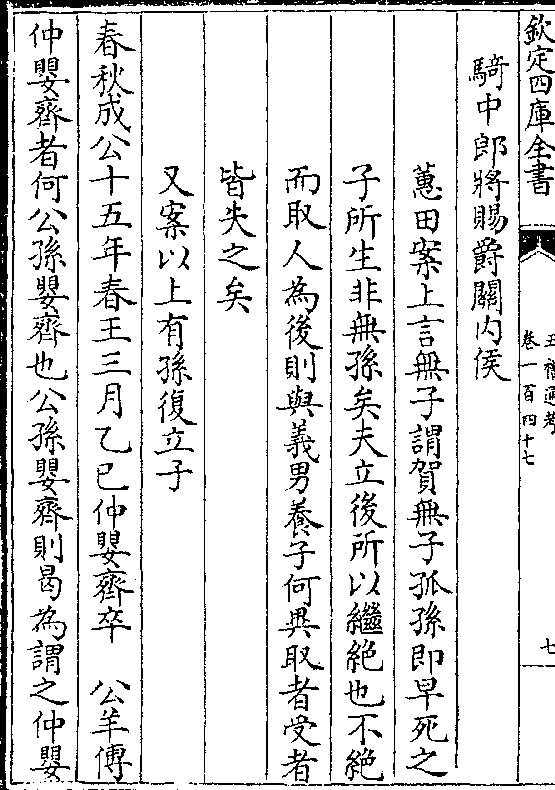 欽定四庫全書
五禮通考
卷一百四十七
七
騎中郎將賜爵關内侯
蕙田案上言無子謂賀無子孤孫即早死之
子所生非無孫矣夫立後所以繼絶也不絶
而取人為後則與義男養子何異取者受者
皆失之矣
又案以上有孫復立子
春秋成公十五年春王三月乙巳仲嬰齊卒　公羊傳
仲嬰齊者何公孫嬰齊也公孫嬰齊則曷為謂之仲嬰